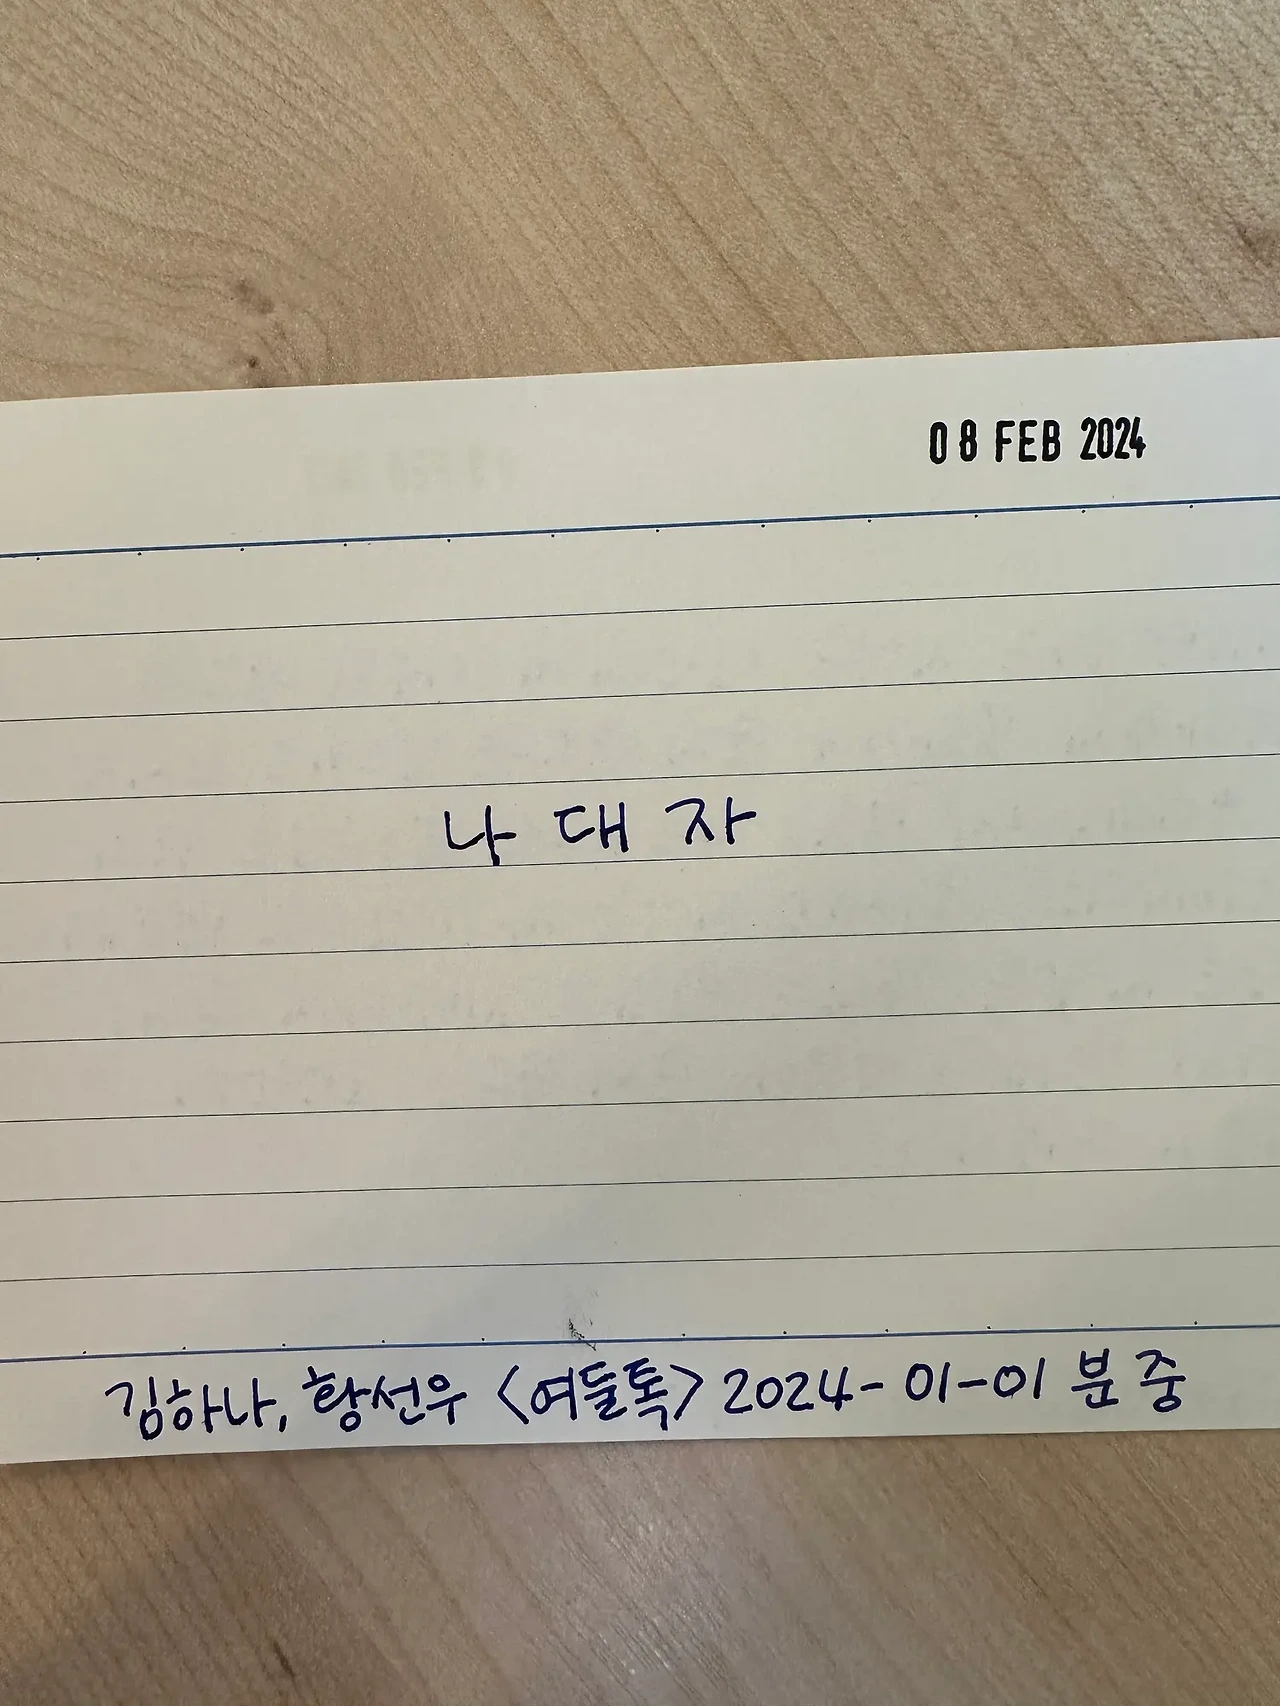 08 FEB 2024
나대자
김하나, 황선우 <여둘톡> 2024-01-01 분 중